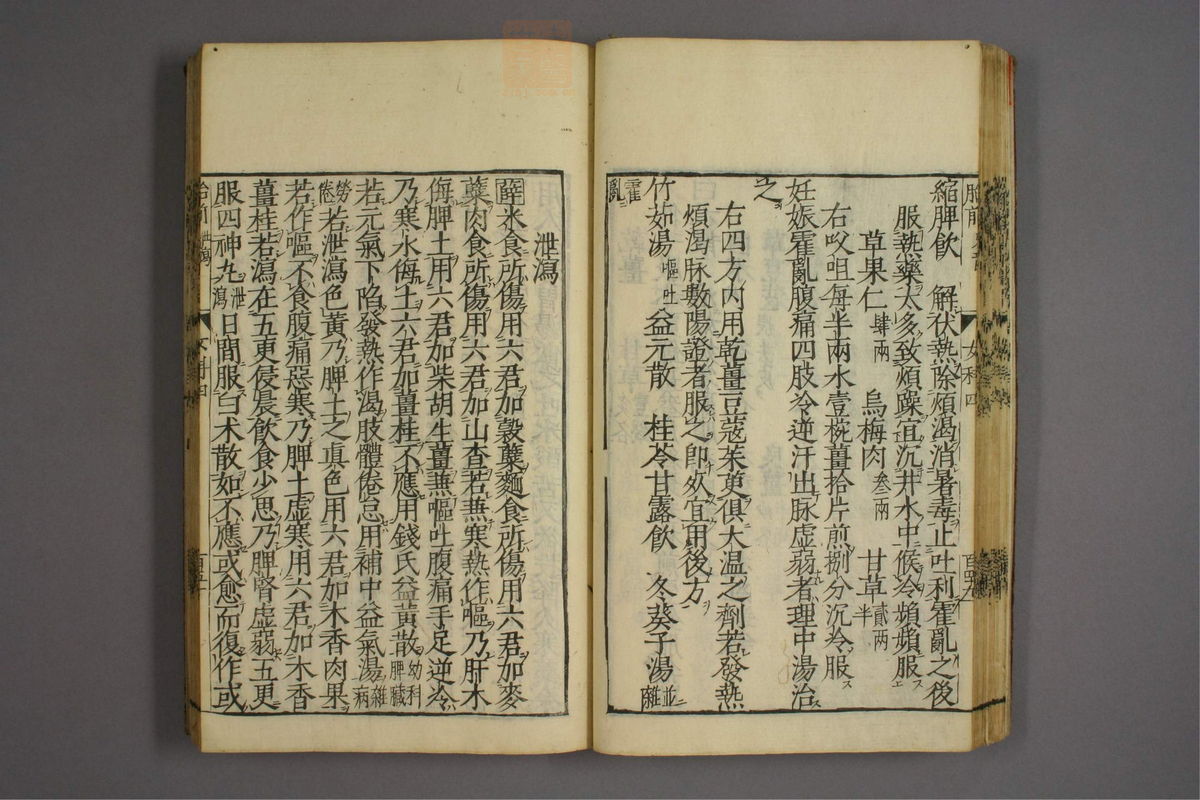 縮脾飲　解伏熱除煩渴消暑毒止吐利霍亂之後
服熱藥太多致煩躁宜沉井水中候冷頻頻服
草果仁肆兩　烏梅肉叁兩　甘草貳兩半
右㕮咀每半兩水壹椀薑拾片煎捌分沉冷服
妊娠霍亂腹痛四肢冷逆汗出脉虛弱者理中湯治
之
右四方內用乾薑豆蔻茱萸俱大温之劑若發熱
煩渴脉數陽證者服之卽死宜用後方
竹茹湯嘔吐益元散　桂苓甘露飲　冬葵子湯並離
霍亂
女科四
泄瀉
薛米食所傷用六君加穀蘖麵食所傷用六君加麥
蘖肉食所傷用六君加山查若兼寒熱作嘔乃肝木
侮脾土用六君加柴胡生薑兼嘔吐腹痛手足逆冷
乃寒水侮土六君加薑桂不應用錢氏益黃散幼利脾臟
若元氣下陷發熱作渴肢體倦怠用補中益氣湯雜病
勞倦若泄瀉色黃乃脾土之眞色用六君加木香肉果
若作嘔不食腹痛惡寒乃脾土虛寒用六君加木香
薑桂若瀉在五更侵晨飲食少思乃脾腎虛弱五更
服四神丸泄瀉日間服白朮散如不應或愈而復作或